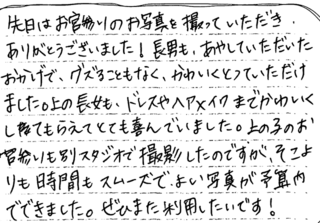 先日はお宮参りのお写真を撮っていただき
ありがとうございました！長男も、あやしていただいた
おかげで、グズることもなく、かわいくとっていただけ
ました。上の長女も、ドレスやヘアメイクまでかわいく
して もらえてとても喜んでいました。上の子のお
宮参りも別スタジオで撮影したのですが、そこよ
りも時間もスムーズで、よい写真が予算内
でできました。ぜひまた利用したいです！